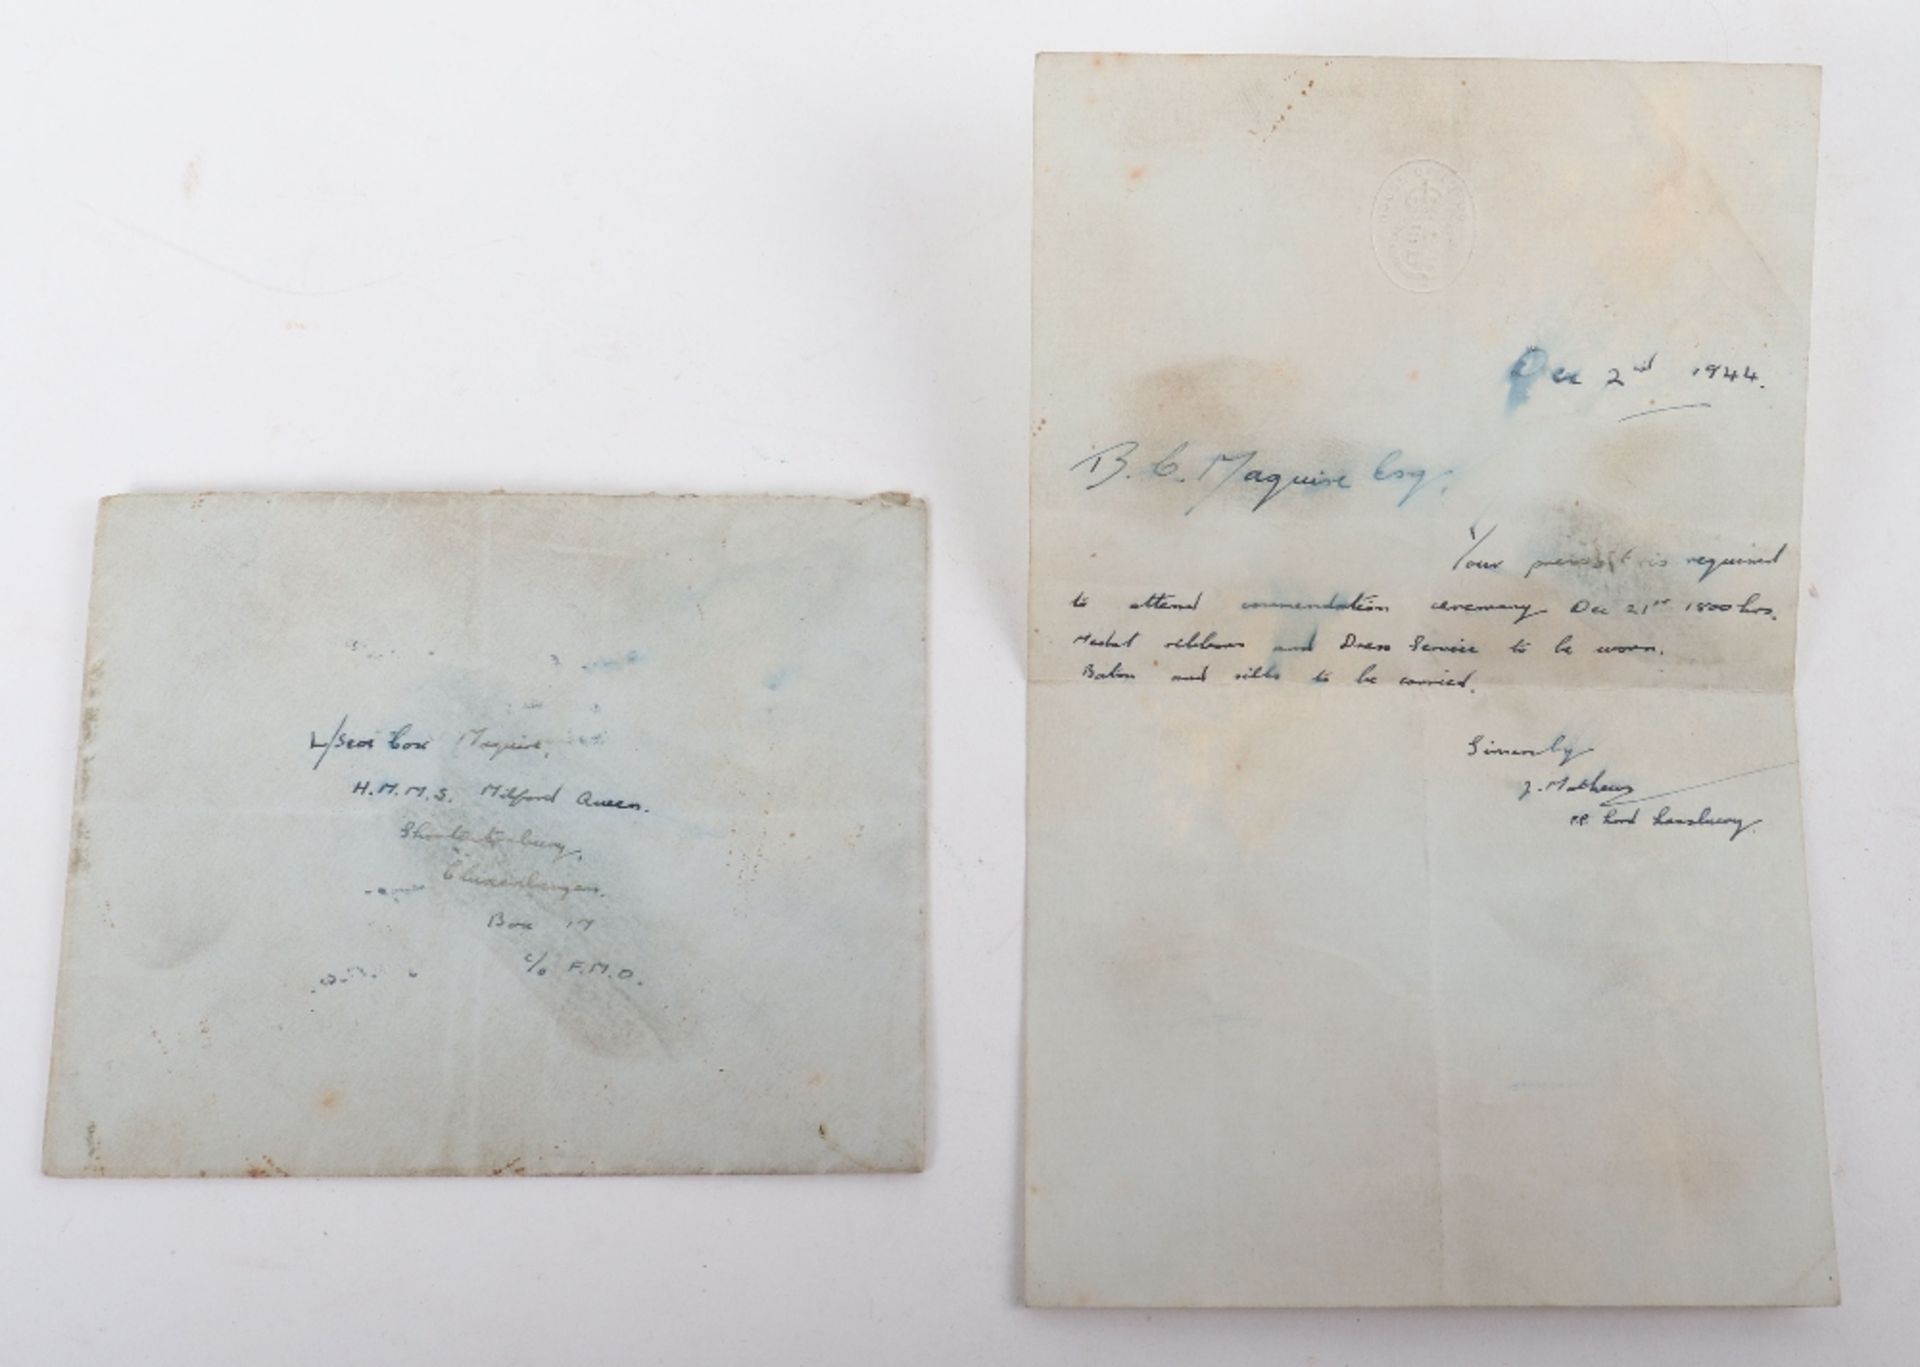 L/Sea Cox Maguire,
H.M.M.S. Milford Queen.
Box 17
c/o F.M.O.
HOUSE OF LORDS
Dec 2nd 1944.
B. C. Maguire Esq.
Your is required
to attend commendation ceremony Dec 21st 1800 hrs.
Medal ribbons and Dress Service to be worn.
Baton and silks to be carried.
Sincerely
J. Mathews
P.P. Lord